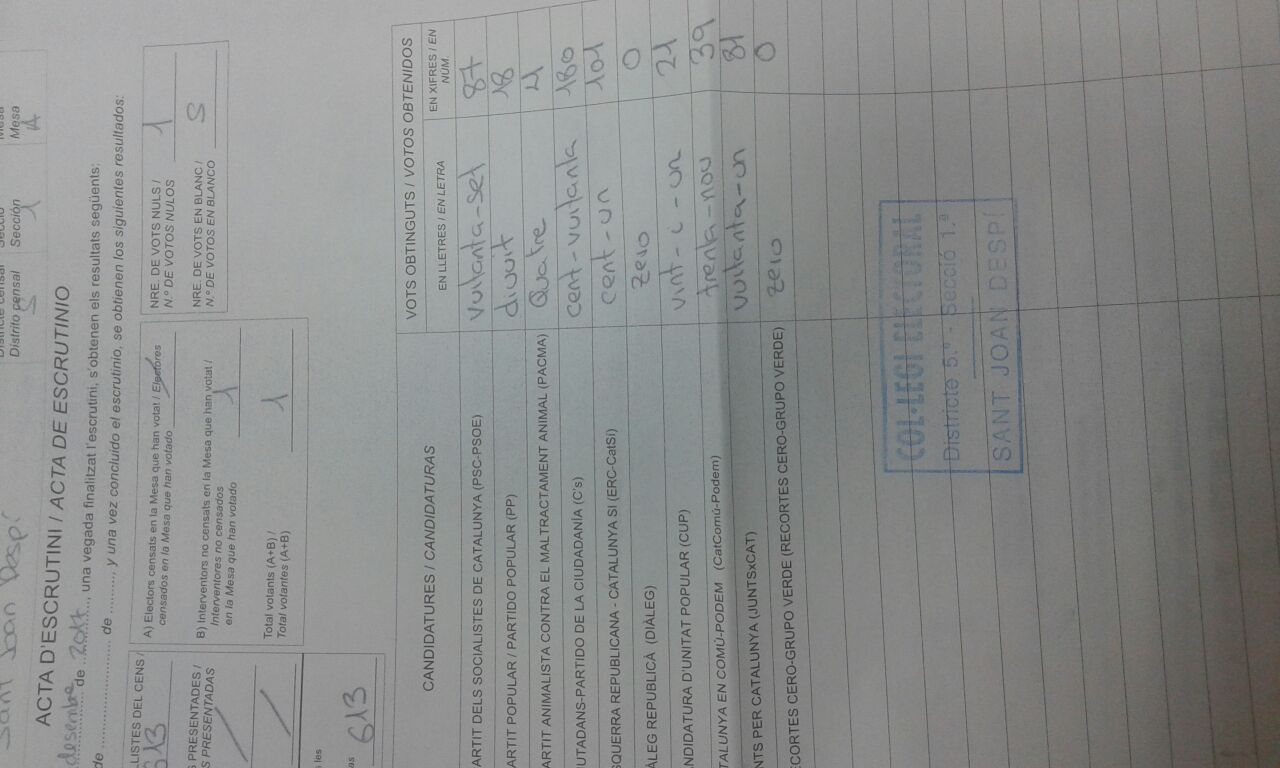 Sant Joan Despí
Districte censal
Distrito censal
5
Secció
Sección
1
Mesa
Mesa
A
ACTA D'ESCRUTINI / ACTA DE ESCRUTINIO
desembre de 2017, una vegada finalitzat l'escrutini, s'obtenen els resultats següents:
de ........ de ........, y una vez concluido el escrutinio, se obtienen los siguientes resultados:
LLISTES DEL CENS /
613
PRESENTADES /
PRESENTADAS
les
613
A) Electors censats en la Mesa que han votat / Electores
censados en la Mesa que han votado
B) Interventors no censats en la Mesa que han votat /
Interventores no censados
en la Mesa que han votado
1
Total votants (A+B) /
Total votantes (A+B)
1
NRE. DE VOTS NULS /
N.º DE VOTOS NULOS
1
NRE. DE VOTS EN BLANC /
N.º DE VOTOS EN BLANCO
5
CANDIDATURES / CANDIDATURAS
VOTS OBTINGUTS / VOTOS OBTENIDOS
EN LLETRES / EN LETRA
EN XIFRES / EN NÚM.
ARTIT DELS SOCIALISTES DE CATALUNYA (PSC-PSOE) vuitanta-set 87
ARTIT POPULAR / PARTIDO POPULAR (PP) divuit 18
ARTIT ANIMALISTA CONTRA EL MALTRACTAMENT ANIMAL (PACMA) Quatre 4
IUTADANS-PARTIDO DE LA CIUDADANÍA (C's) cent-vuitanta 180
SQUERRA REPUBLICANA - CATALUNYA SÍ (ERC-CatSí) cent-un 101
IÀLEG REPUBLICÀ (DIÀLEG) zero 0
ANDIDATURA D'UNITAT POPULAR (CUP) vint-i-un 21
TALUNYA EN COMÚ-PODEM (CatComú-Podem) trenta-nou 39
NTS PER CATALUNYA (JUNTSxCAT) vuitanta-un 81
ECORTES CERO-GRUPO VERDE (RECORTES CERO-GRUPO VERDE) zero 0
COL·LEGI ELECTORAL
Districte 5.º - Secció 1.ª
SANT JOAN DESPÍ